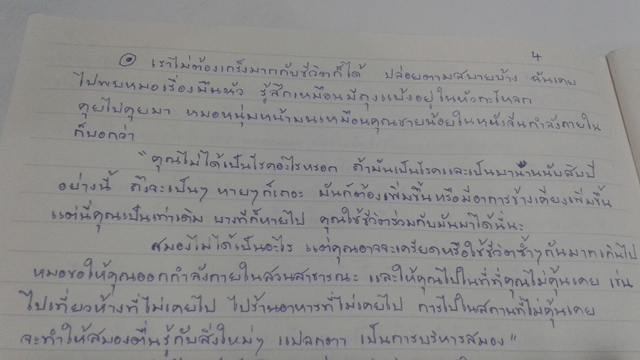 4
เราไม่ต้องเกร็งมากกับชีวิตก็ได้ ปล่อยตามสบายบ้าง ฉันเคย
ไปพบหมอเรื่องมึนหัว รู้สึกเหมือนมีถุงแป้งอยู่ในหัวกะโหลก
คุยไปคุยมา หมอหนุ่มหน้ามนเหมือนคุณชายน้อยในหนังจีนกำลังภายใน
ก็บอกว่า
"คุณไม่ได้เป็นโรคอะไรหรอก ถ้ามันเป็นโรคและเป็นมานานนับสิบปี
อย่างนี้ ถึงจะเป็นๆ หายๆก็เถอะ มันก็ต้องเพิ่มขึ้นหรือมีอาการข้างเคียงเพิ่มขึ้น
แต่นี่คุณเป็นเท่าเดิม บางทีก็หายไป คุณใช้ชีวิตร่วมกับมันมาได้นี่นะ
สมองไม่ได้เป็นอะไร แต่คุณอาจจะเครียดหรือใช้ชีวิตซ้ำๆกันมากเกินไป
หมอขอให้คุณออกกำลังกายในสวนสาธารณะ และให้คุณไปในที่ที่คุณไม่คุ้นเคย เช่น
ไปเที่ยวห้างที่ไม่เคยไป ไปร้านอาหารที่ไม่เคยไป การไปในสถานที่ไม่คุ้นเคย
จะทำให้สมองตื่นรู้กับสิ่งใหม่ๆ แปลกตา เป็นการบริหารสมอง"